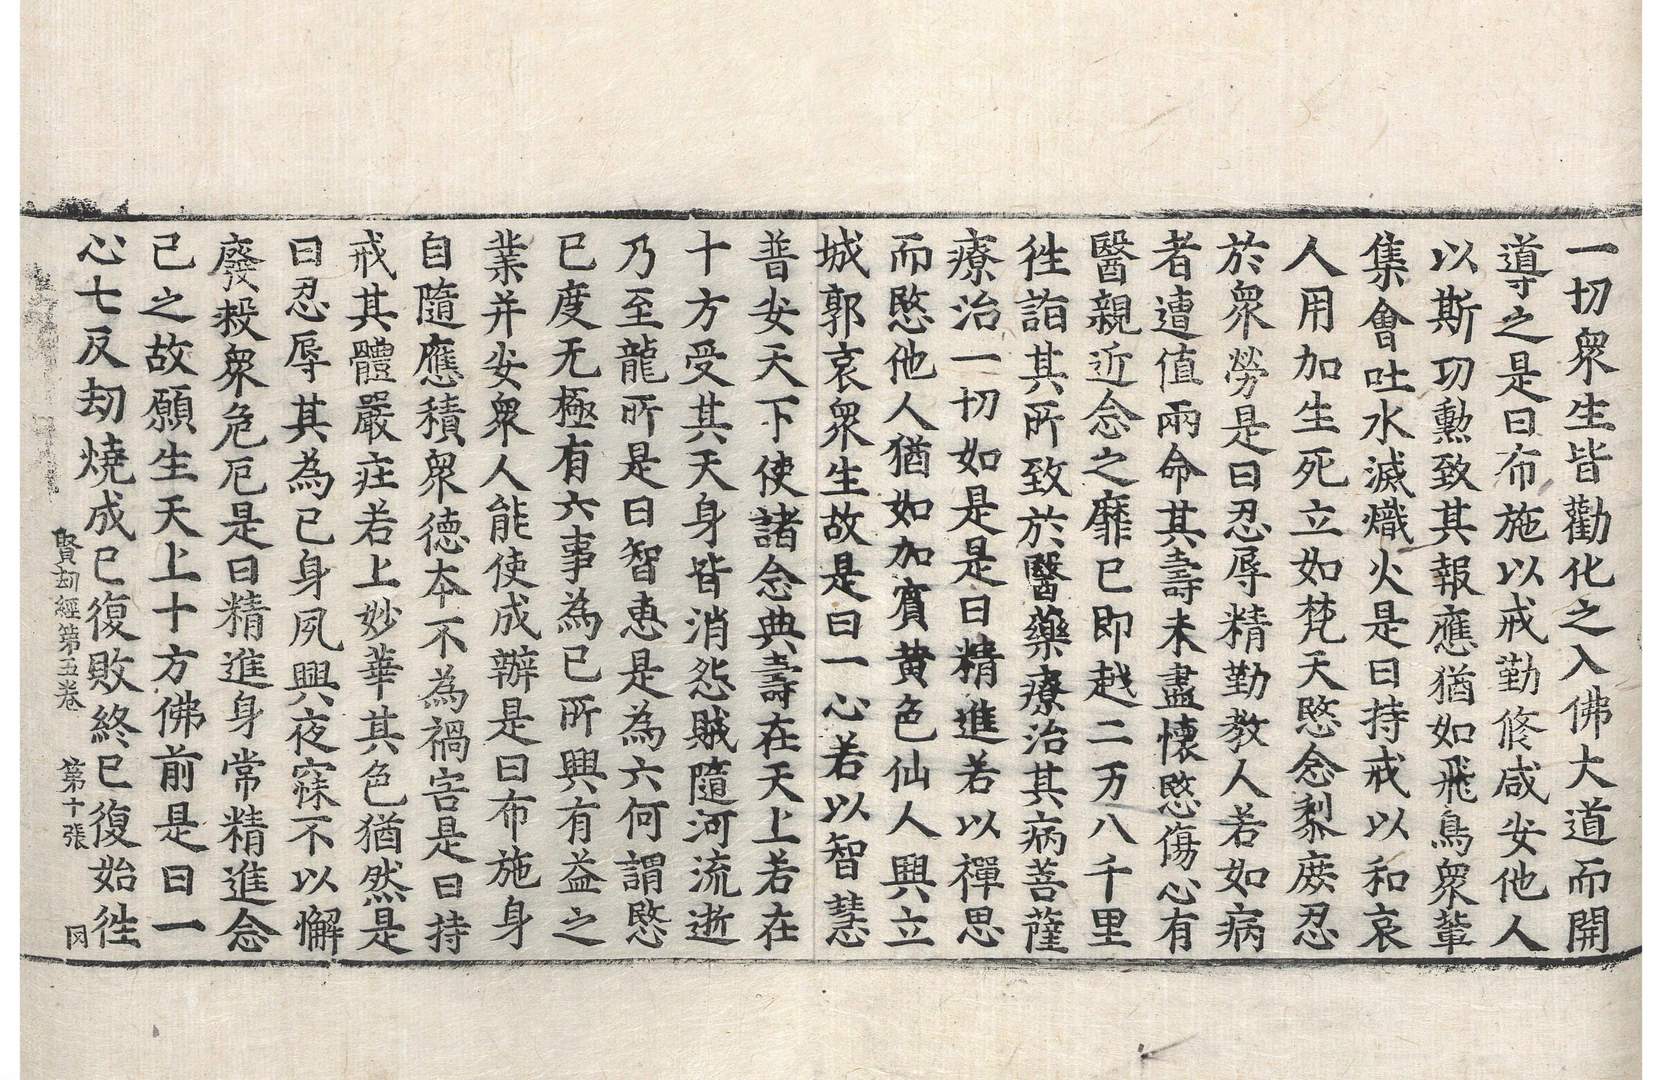 一切衆生皆勸化之入佛大道而開
導之是曰布施以戒勤修咸安他人
以斯功勳致其報應猶如飛鳥衆輩
集會吐水滅熾火是曰持戒以和哀
人用加生死立如梵天愍念黎庶忍
於衆勞是曰忍辱精勤教人若如病
者遭值兩命其壽未盡懷愍傷心有
醫親近念之靡已即越二万八千里
徃詣其所致於醫藥療治其病菩薩
療治一切如是是曰精進若以禪思
而愍他人猶如加賔黄色仙人興立
城郭哀衆生故是曰一心若以智慧
普安天下使諸念典壽在天上若在
十方受其天身皆消怨賊隨河流逝
乃至龍所是曰智恵是為六何謂愍
已度无極有六事為已所興有益之
業并安衆人能使成辦是曰布施身
自隨應積衆德本不為禍害是曰持
戒其體嚴庄若上妙華其色猶然是
曰忍辱其為已身夙興夜寐不以懈
廢發衆危厄是曰精進身常精進念
已之故願生天上十方佛前是曰一
心七反劫燒成已復敗終已復始徃
賢劫經第五卷 第十張 冈